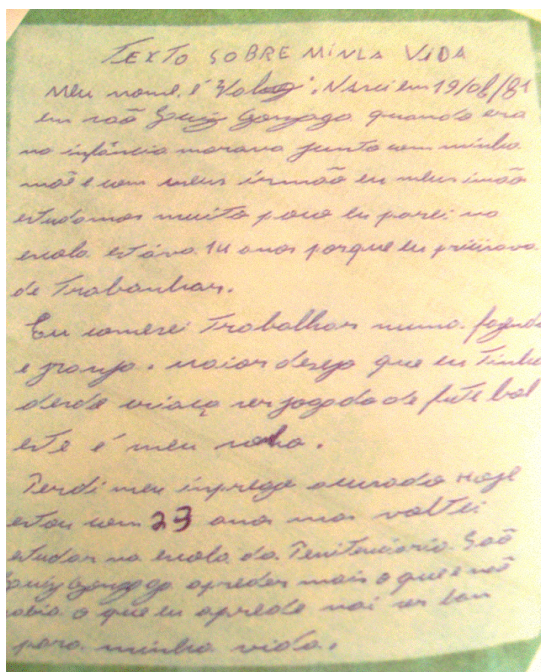 TEXTO SOBRE MINLA VIDA
Meu nome, é Nasci em 19/08/81
em saõ Luiz Gonzaga quando era
na infância morava junto com minha
maẽ e com meus irmaõ eu meus imaõ
estudamos muito pouco eu parei na
escola estáva 14 anos porque eu precisava
de Trabanhar.
Eu comecei Trabalhar numa fazenda
e granja. maior desejo que eu Tinha
desde criaça ser jogado de fute bal
este é meu
Perdi meu imprego Hoje
estou com 23 ano mas voltei
estudar na escola da Penitenciario Saõ
Luiz Gonzaga apreder mais o que e naõ
sabia o que eu aprede vai ser bon
para minha vida.